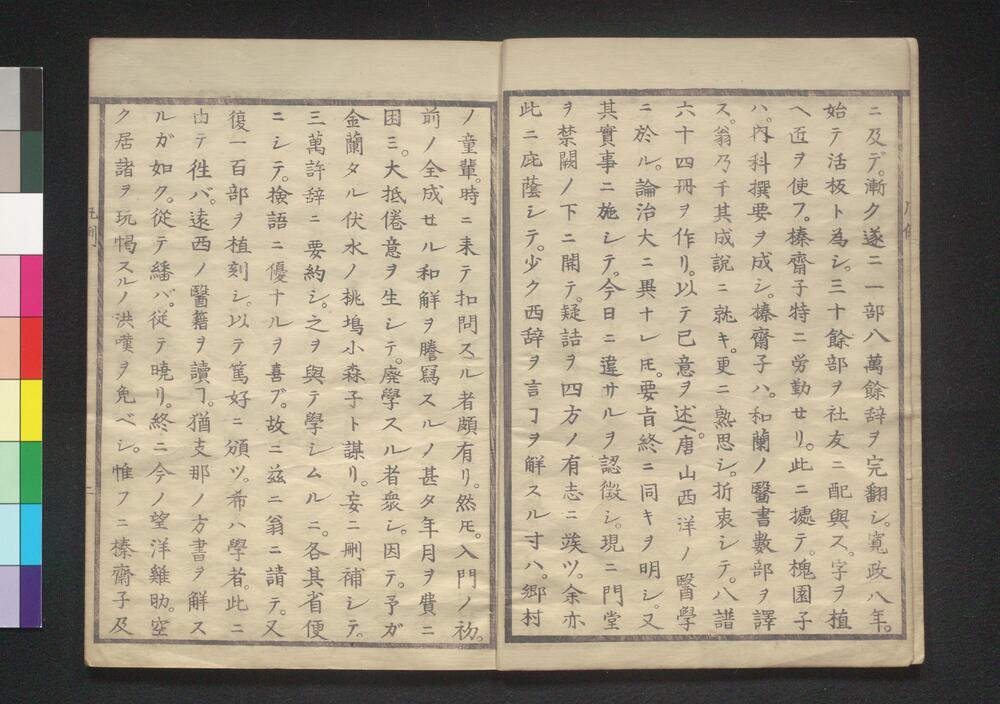 ニ及デ。漸ク遂ニ一部八萬餘辞ヲ完翻シ。寛政八年。
始テ活板ト為シ。三十餘部ヲ社友ニ配與ス。字ヲ植
ヘ匠ヲ使フ。榛齋子特ニ労勤セリ。此ニ據テ。槐園子
ハ。内科撰要ヲ成シ。榛齋子ハ。和蘭ノ醫書數部ヲ譯
ス。翁乃チ其成説ニ就キ。更ニ熟思シ。折衷シテ。八譜
六十四冊ヲ作リ。以テ已意ヲ述ヘ。唐山西洋ノ醫學
ニ於ル。論治大ニ異ナレ𪜈。要旨終ニ同キヲ明シ。又
其實事ニ施シテ。今日ニ違サルヲ認徴シ。現ニ門堂
ヲ禁闕ノ下ニ開テ。疑詰ヲ四方ノ有志ニ竢ツ。余亦
此ニ庇蔭シテ。少ク西辞ヲ言ヿヲ解スル寸ハ。郷村
ノ童輩。時ニ来テ扣問スル者頗有リ。然𪜈。入門ノ初。
前ノ全成セル和解ヲ謄寫スルノ甚タ年月ヲ費ニ
困ミ。大抵倦意ヲ生シテ。廃學スル者衆シ。因テ。予ガ
金蘭タル伏水ノ桃塢小森子ト謀リ。妄ニ刪補シテ。
三萬許辞ニ要約シ。之ヲ與テ學シムルニ。各其省便
ニシテ。捡語ニ優ナルヲ喜ブ。故ニ玆ニ翁ニ請テ。又
復一百部ヲ植刻シ。以テ篤好ニ頒ツ。希ハ學者。此ニ
由テ徃バ。遠西ノ醫籍ヲ讀ヿ。猶支那ノ方書ヲ解ス
ルガ如ク。從テ繙バ。従テ曉リ。終ニ今ノ望洋雞肋。空
ク居諸ヲ玩愒スルノ洪嘆ヲ免ベシ。惟フニ榛齋子及
凡例
二